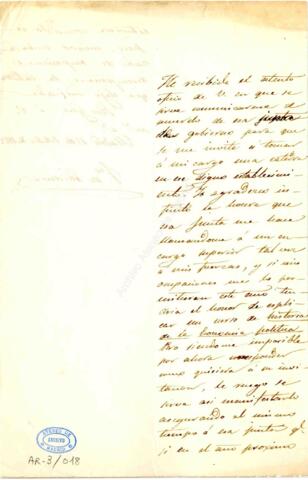 He recibido el atento
oficio de V. en que se
sirve comunicarme el
acuerdo de su junta
de gobierno para que
se me invite a tomar
á mi cargo una catedra
en ese digno establecimi-
ento. Yo agradezco in-
finito la honra que
esa Junta me hace
llamandome á un en-
cargo superior tal vez
á mis fuerzas, y si mis
ocupaciones me lo per-
mitieran este año ten-
dria el honor de espli-
car un curso de historia
de la economia politica.
Pero siendome imposible
por ahora responder
como quisiera á su invi-
tacion, le ruego se
sirva asi manifestarlo
asegurando al mismo
tiempo á esa junta qe.
si en el año proximo
ATENEO DE
ARCHIVO
MADRID
AR-3/018